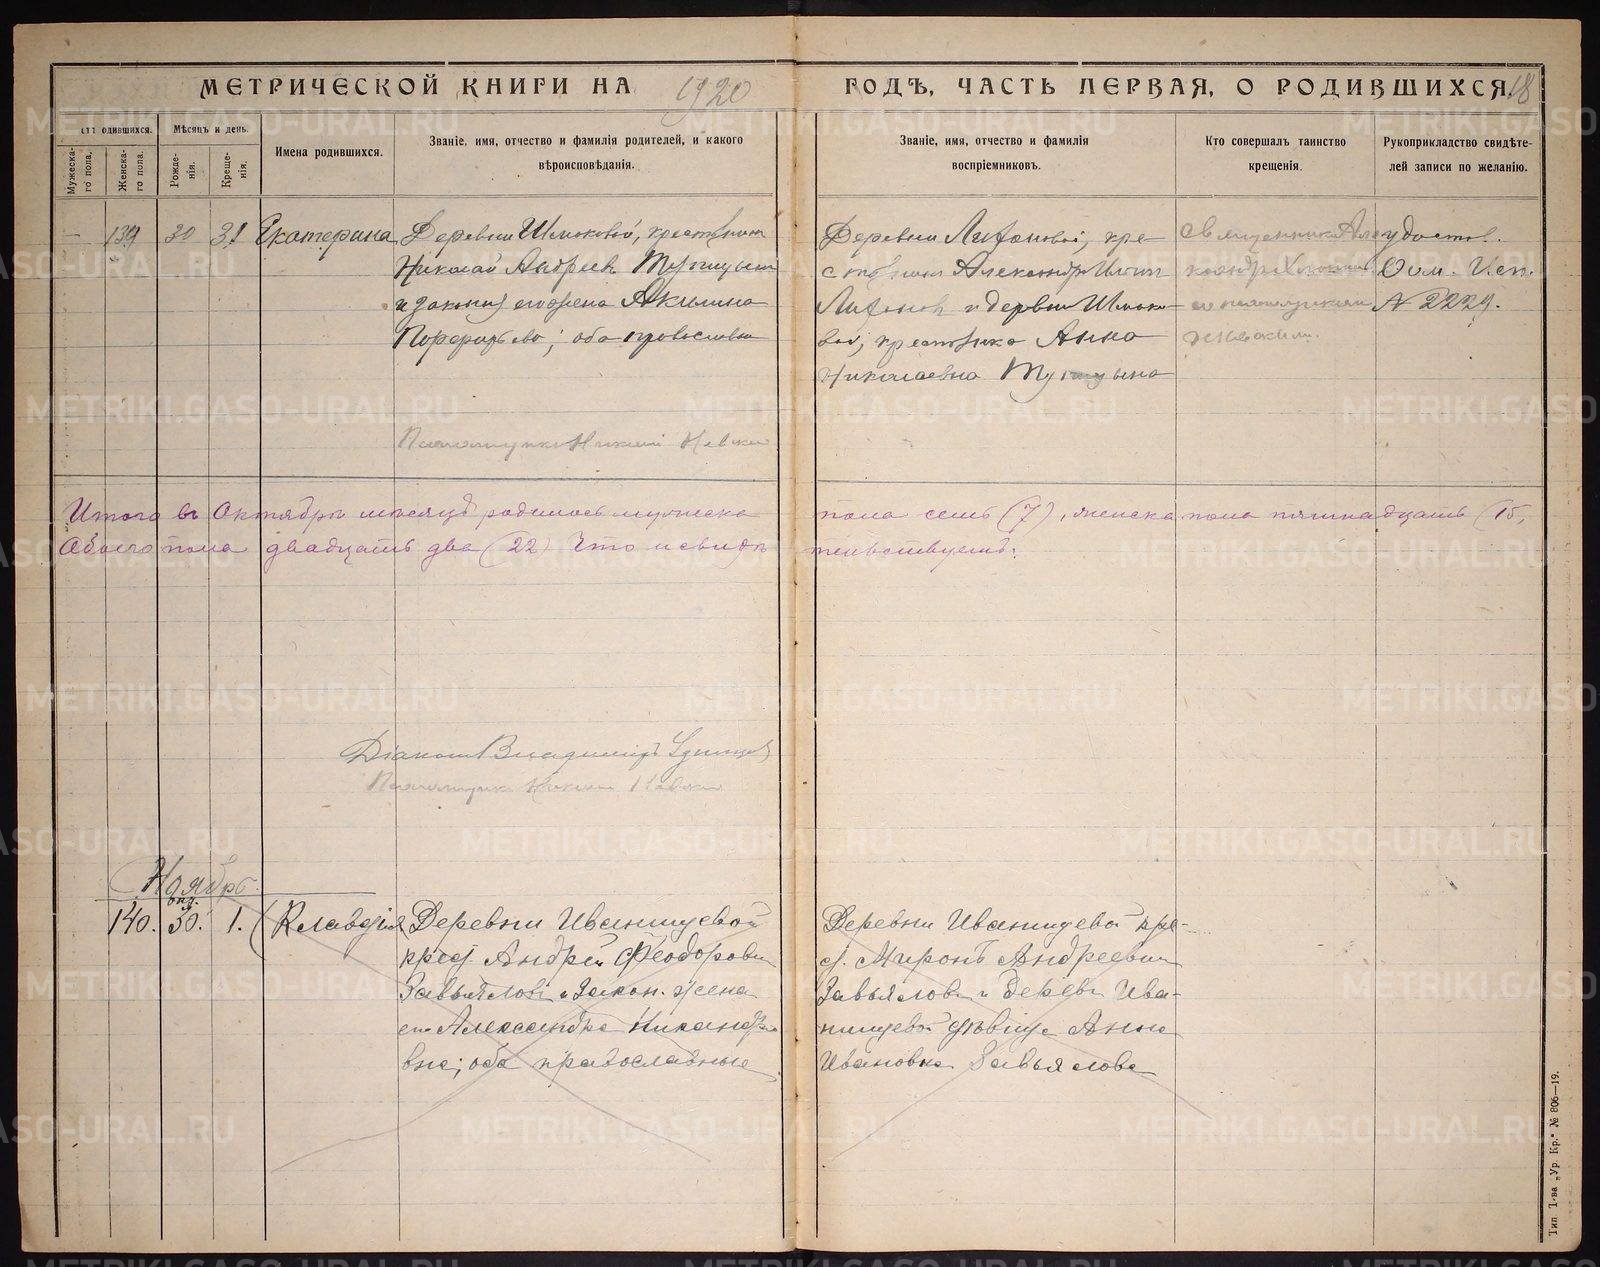 МЕТРИЧЕСКОЙ КНИГИ НА 1920 ГОДЪ, ЧАСТЬ ПЕРВАЯ, О РОДИВШИХСЯ. 18
одившихся.
Мѣсяцъ и день.
Мужеска-
го пола.
Женска-
го пола.
Рожде-
нія.
Креще-
нія.
Имена родившихся.
Званіе, имя, отчество и фамилія родителей, и какого
вѣроисповѣданія.
Званіе, имя, отчество и фамилія
воспріемниковъ.
Кто совершалъ таинство
крещенія.
Рукоприкладство свидѣте-
лей записи по желанію.
— 139 30 31 Екатерина
Деревни Шмаковой,
Николай Андреев
и законная его жена Акилина
Порфирьева; оба православн
Деревни Лифановой, кре-
Александр
Лифанов и дервни Шмако-
вой, Анна
Николаевна
Священник Алек-
удостов.
Исп.
№ 2229.
Псаломщикъ Невск
Итого въ Октябрѣ мѣсяцѣ родилось мужеска пола семь (7), женска пола пятнадцать (15,
Обоего пола двадцать два (22) Что и свидѣтельствуемъ:
Діаконъ Владимиръ
Псаломщик Невск
Ноябрь.
140. окт. 30. 1. Клавдія
Деревни Иванищевой
крест. Андрей Феодорович
Завьяловъ и Закон. жена
его Александра Никандро
вна; оба православные
Деревни Иванищевой кре-
ст. Миронъ Андреевич
Завьялов и Дерев. Ива-
нищевой дѣвица Анна
Ивановна Завьялова
Тип Т-ва „Ур. Кр.“ № 806—19.
METRIKI.GASO-URAL.RU